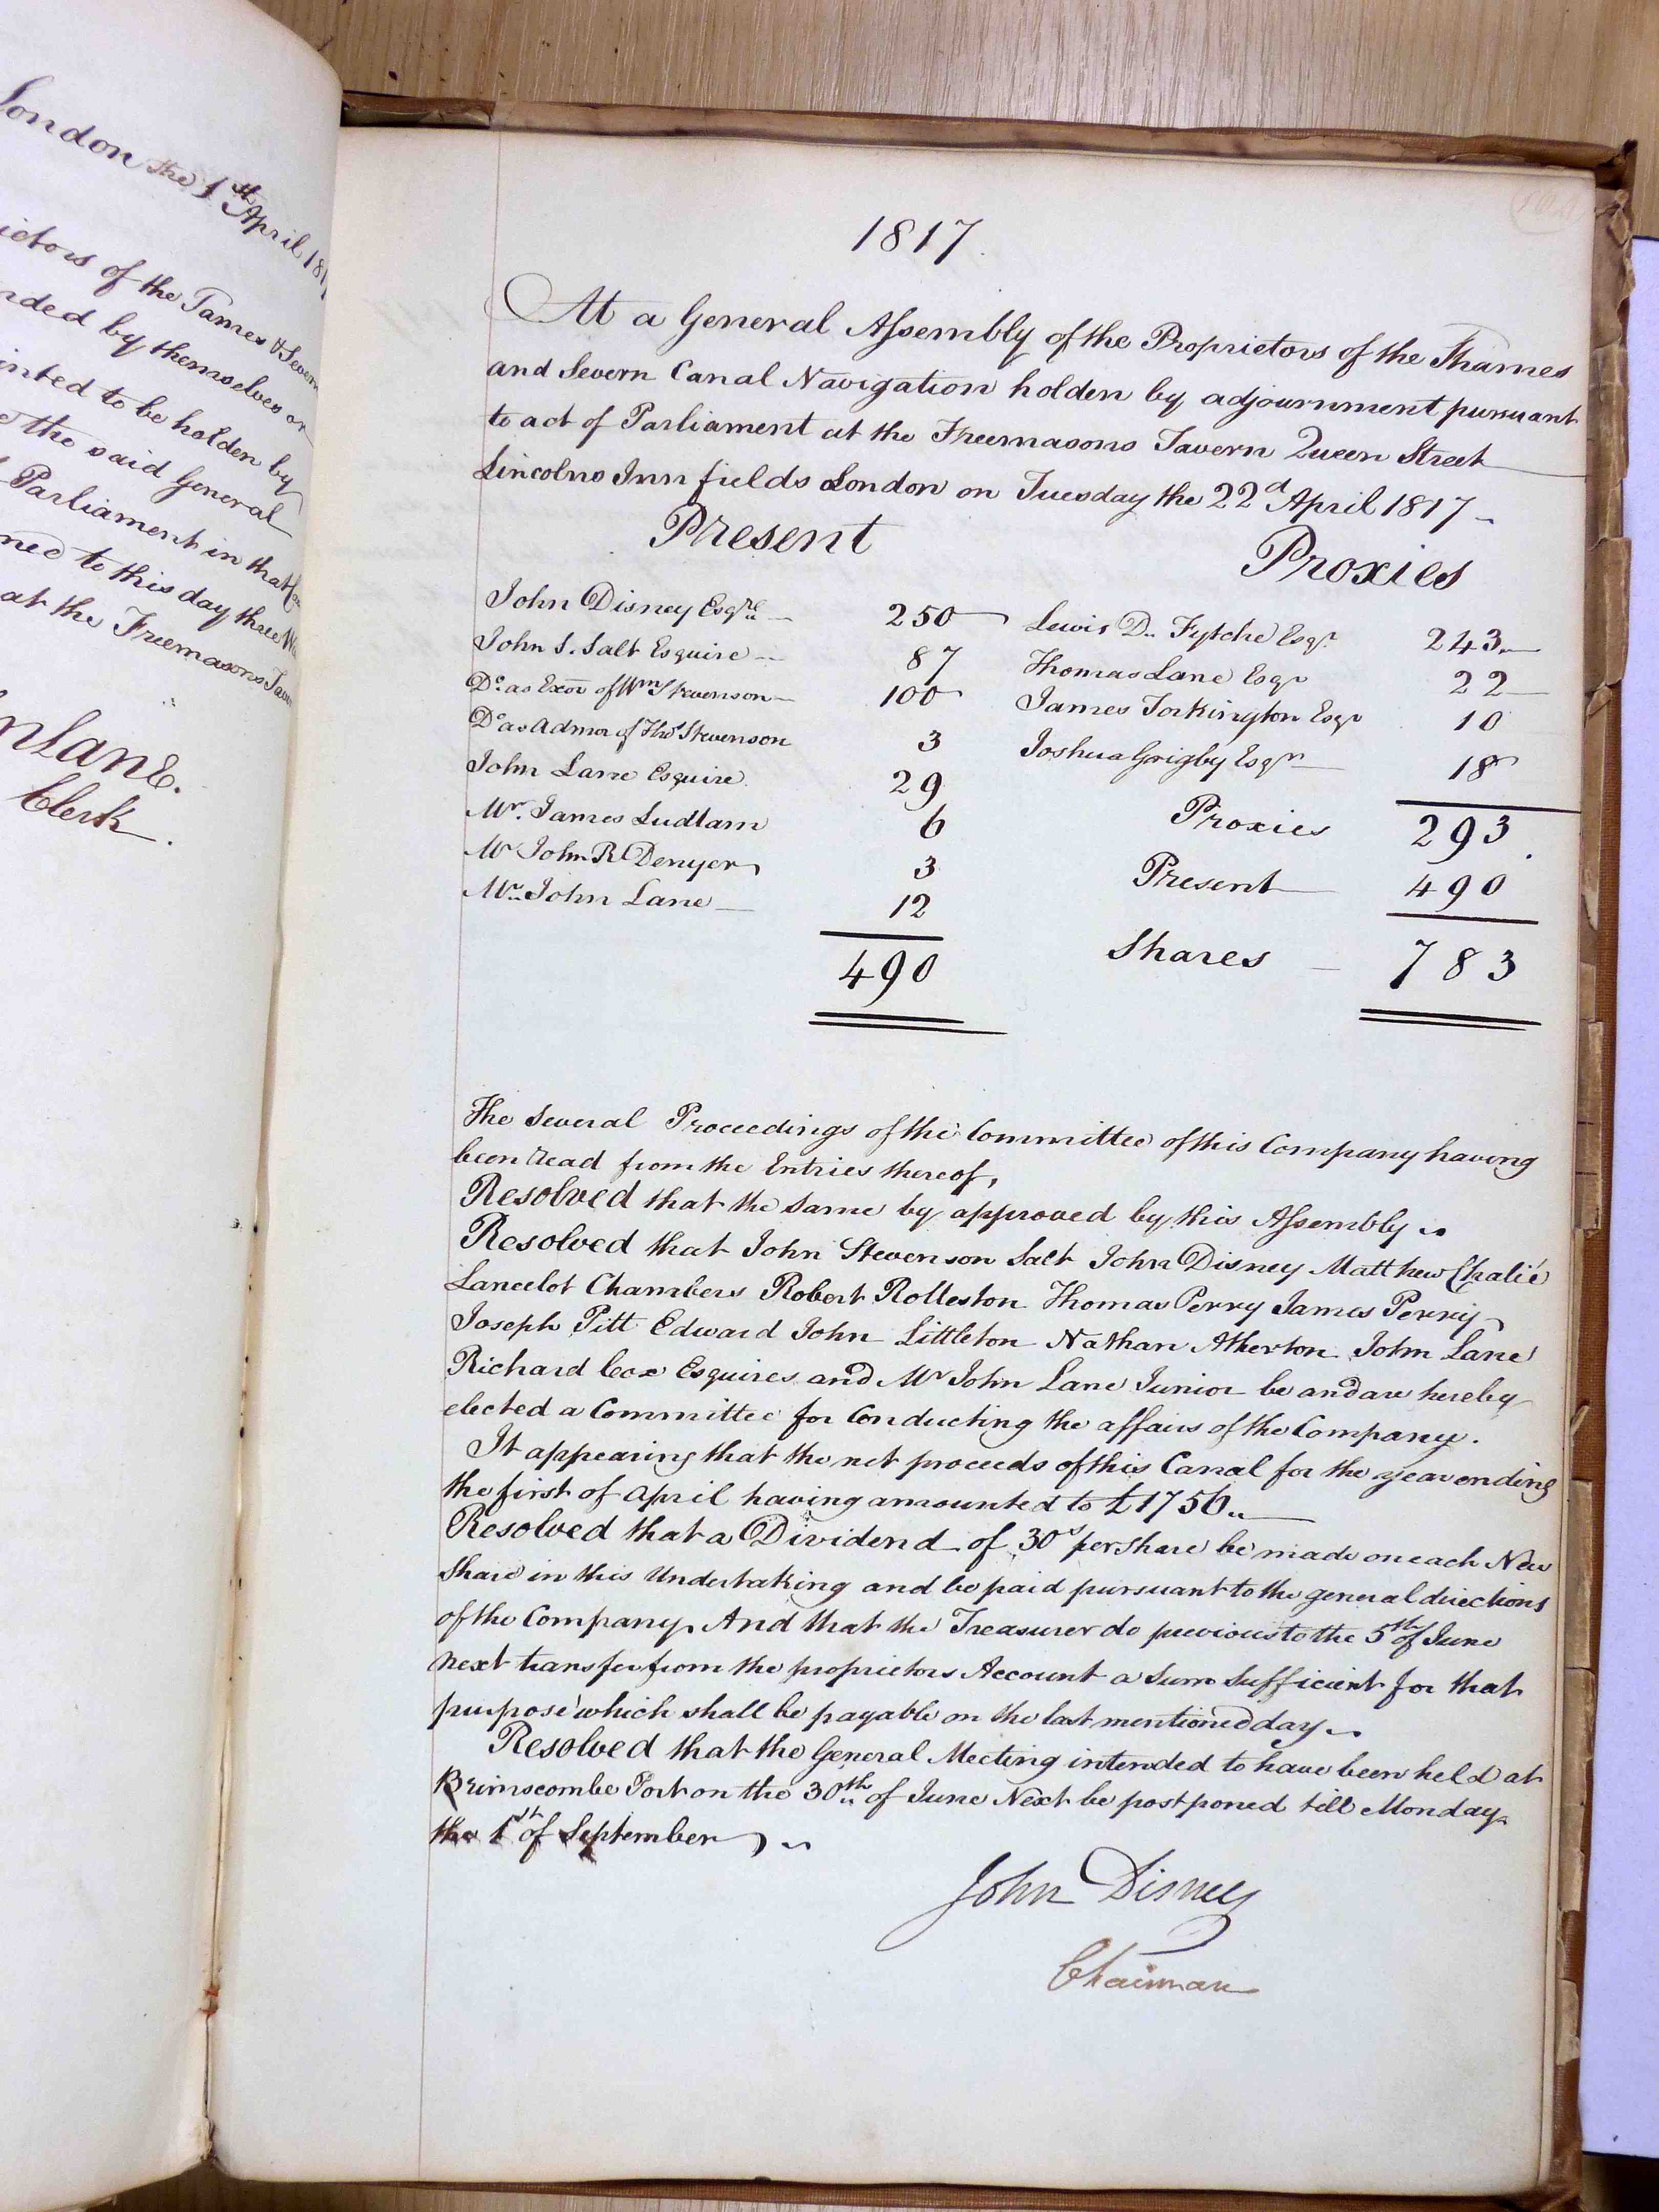 London the 1st April 181
ietors of the Tames & Severn
nded by themselves or
inted to be holden by
e the said General
Parliament in that
ned to this day three
at the Freemasons Tav
n Lane.
Clerk.
1817.
At a General Assembly of the Proprietors of the Thames
and Severn Canal Navigation holden by adjournment pursuant
to act of Parliament at the Freemasons Tavern Queen Street
Lincolns Inn fields London on Tuesday the 22d April 1817
Present Proxies
John Disney Esqre 250 Lewis D. Fytche Esqr 243
John S. Salt Esquire 87 Thomas Lane Esqr 22
Do as Exor of Wm Stevenson 100 James Torkington Esqr 10
Do as Admor of Thos Stevenson 3 Joshua Grigby Esqr 18
John Lane Esquire 29 Proxies 293
Mr. James Ludlam 6 Present 490
Mr John R Denyer 3 Shares 783
Mr. John Lane 12
490
The several Proceedings of the Committee of this Company having
been read from the Entries thereof,
Resolved that the same by approved by this Assembly
Resolved that John Stevenson Salt John Disney Matthew Chalié
Lancelot Chambers Robert Rolleston Thomas Perry James Perry
Joseph Pitt Edward John Littleton Nathan Atherton John Lane
Richard Cox Esquires and Mr John Lane Junior be and are hereby
elected a Committee for Conducting the affairs of the Company.
It appearing that the net proceeds of this Canal for the year ending
the first of April having amounted to £1756
Resolved that a Dividend of 30s per share be made on each New
Share in this Undertaking and be paid pursuant to the general directions
of the Company And that the Treasurer do previous to the 5th of June
next transfer from the proprietors Account a Sum sufficient for that
purpose which shall be payable on the last mentioned day
Resolved that the General Meeting intended to have been held at
Brimscombe Port on the 30th of June Next be postponed till Monday
the 1st of September
John Disney
Chairman